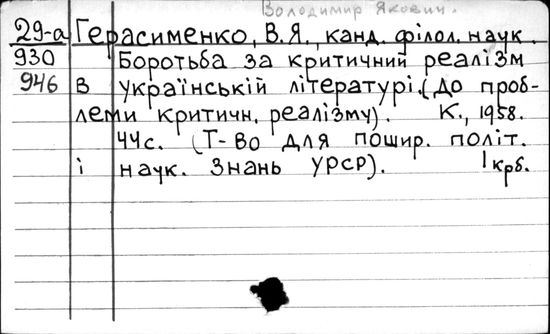 Володимир Якович.
29-а Герасименко, В.Я., канд. філол. наук.
930 Боротьба за критичний реалізм
946 в українській літературі. (до проб-
леми критичн. реалізму). К., 1958.
44с. (Т-во для пошир. політ.
і наук. знань УРСР). 1 крб.